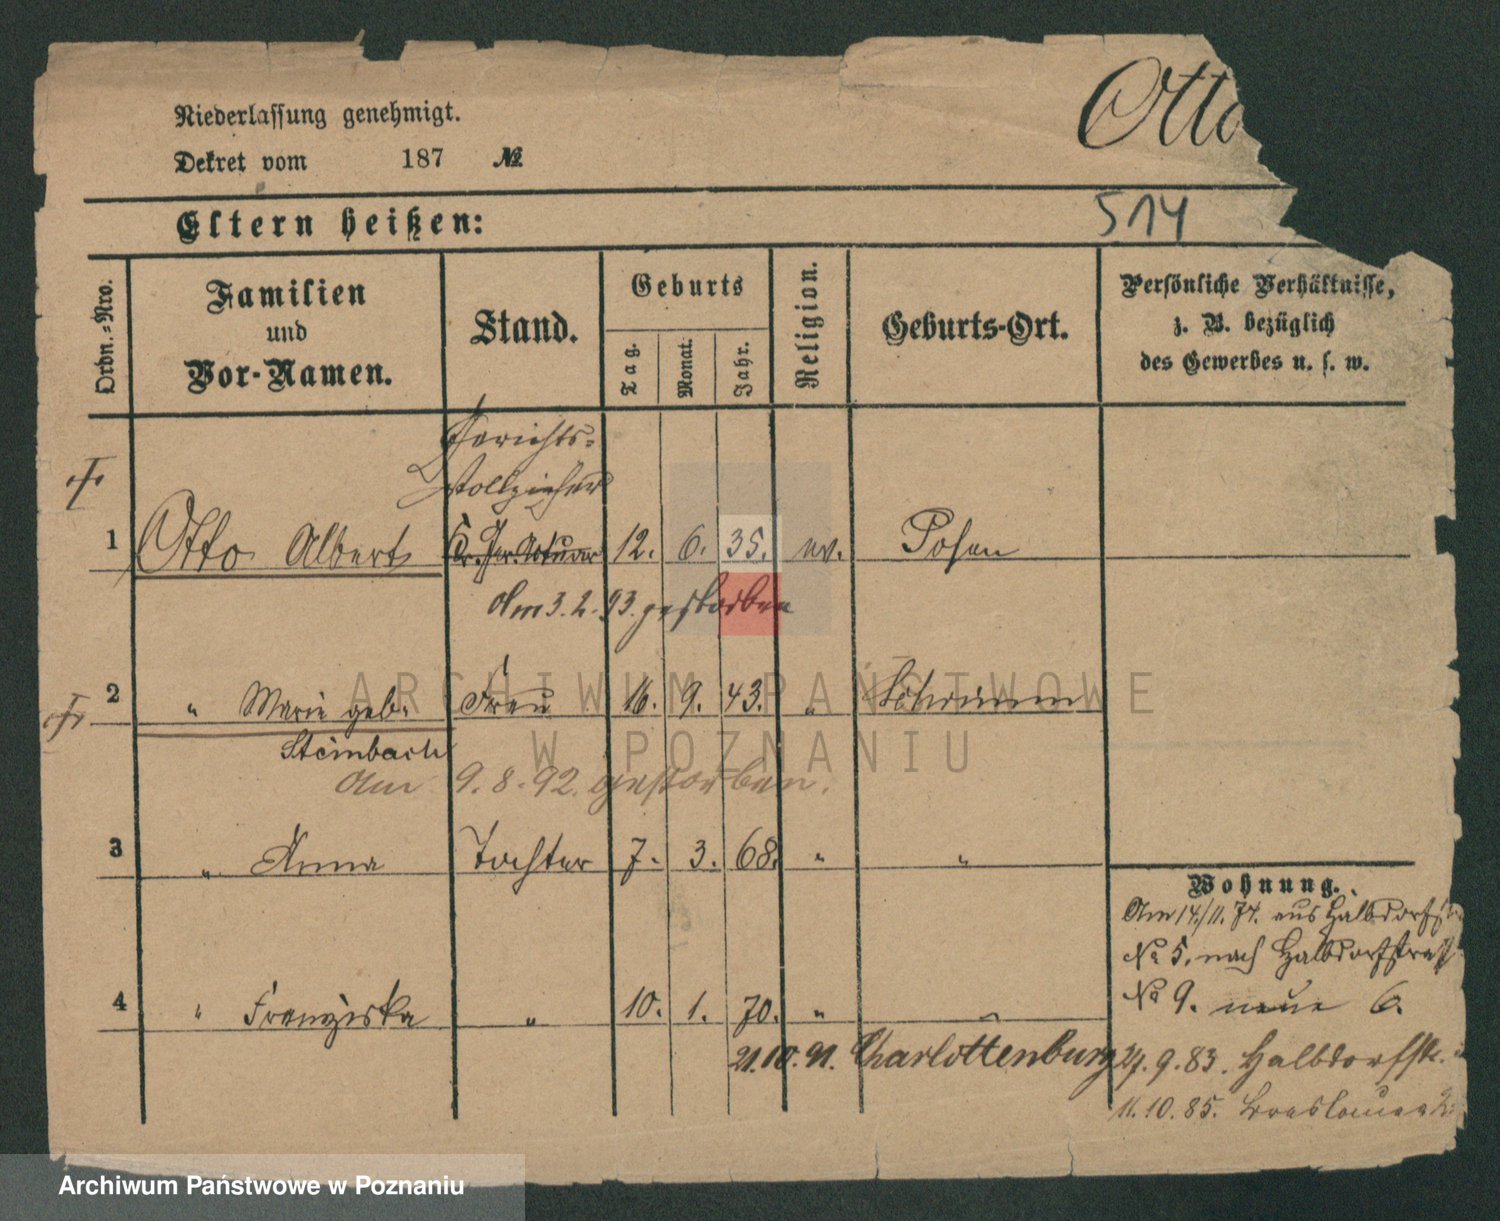 Otto
Niederlassung genehmigt.
Dekret vom 187 №
514
Eltern heißen:
Ordn.-Nro.
Familien
und
Vor-Namen.
Stand.
Geburts
Tag.
Monat.
Jahr.
Religion.
Geburts-Ort.
Persönliche Verhältnisse,
z. B. bezüglich
des Gewerbes u. s. w.
Gerichts-
Vollzieher
1 Otto Albert 12. 6. 35. ev. Posen
Am 3. 2. 93. gestorben
2 " Marie geb. Frau 16. 9. 43. " Schrimm
Steinbach
Am 9. 8. 92. gestorben.
3 " Anna Tochter 7. 3. 68. " "
4 " Franziska " 10. 1. 70. " "
21. 10. 91. Charlottenburg
Wohnung.
Am 14./11. 74. aus Halbdorfst
No 5. nach Halbdorfstraß
No 9. neue 6.
27. 9. 83. Halbdorfstr.
11. 10. 85.
ARCHIWUM PAŃSTWOWE
W POZNANIU
Archiwum Państwowe w Poznaniu